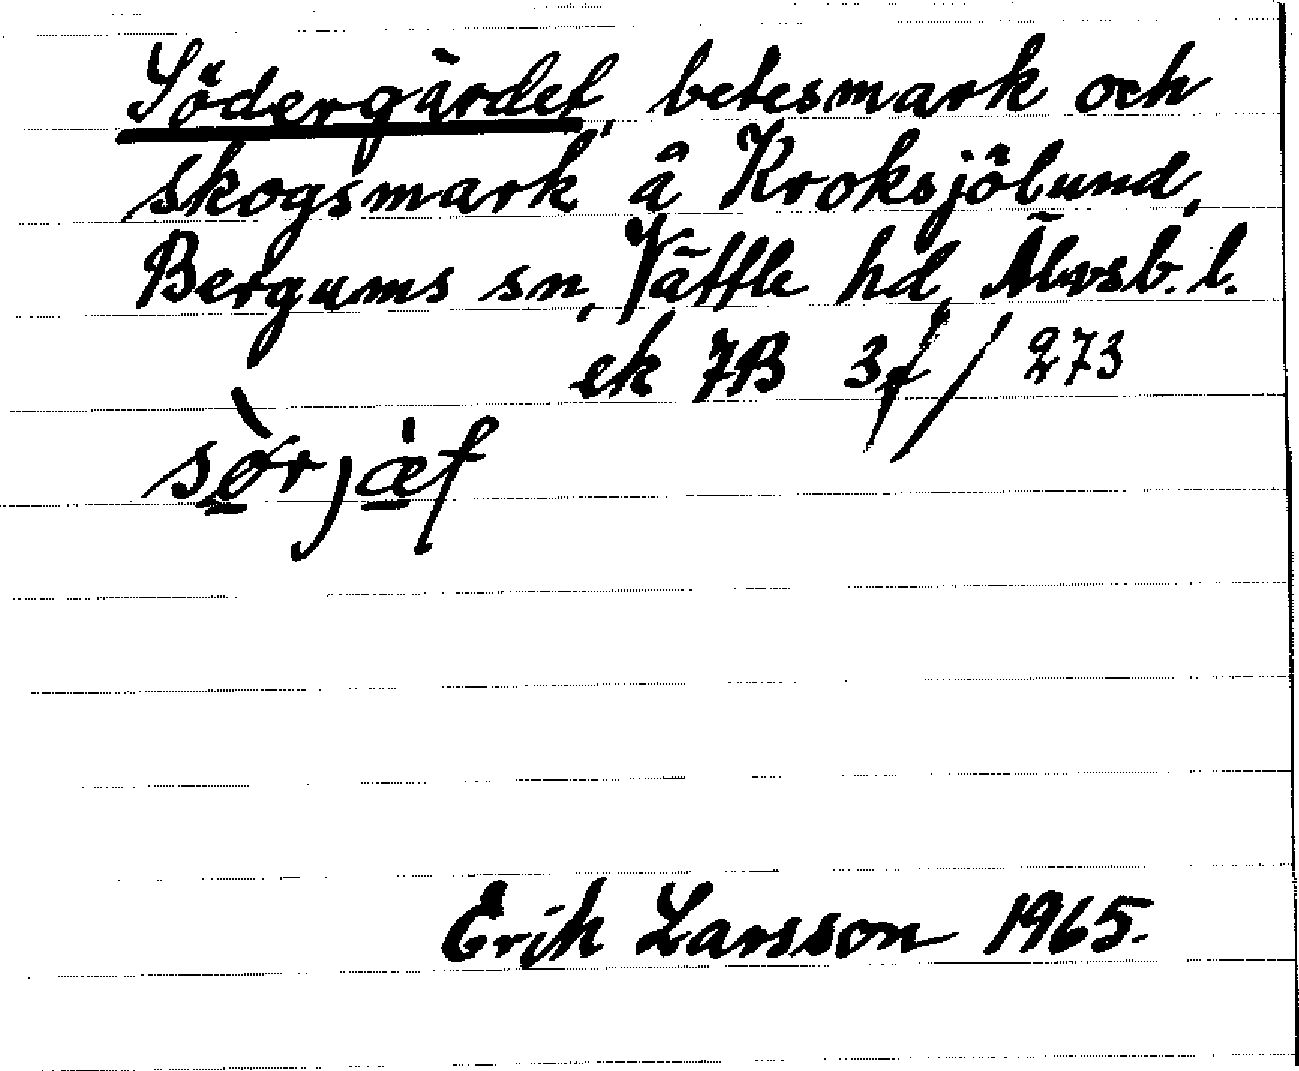 Södergärdet, betesmark och
skogsmark å Kroksjölund,
Bergums sn, Vättle hd, Älvsb. l.
ek 7B 3f / 273
sørjæf
Erik Larsson 1965.